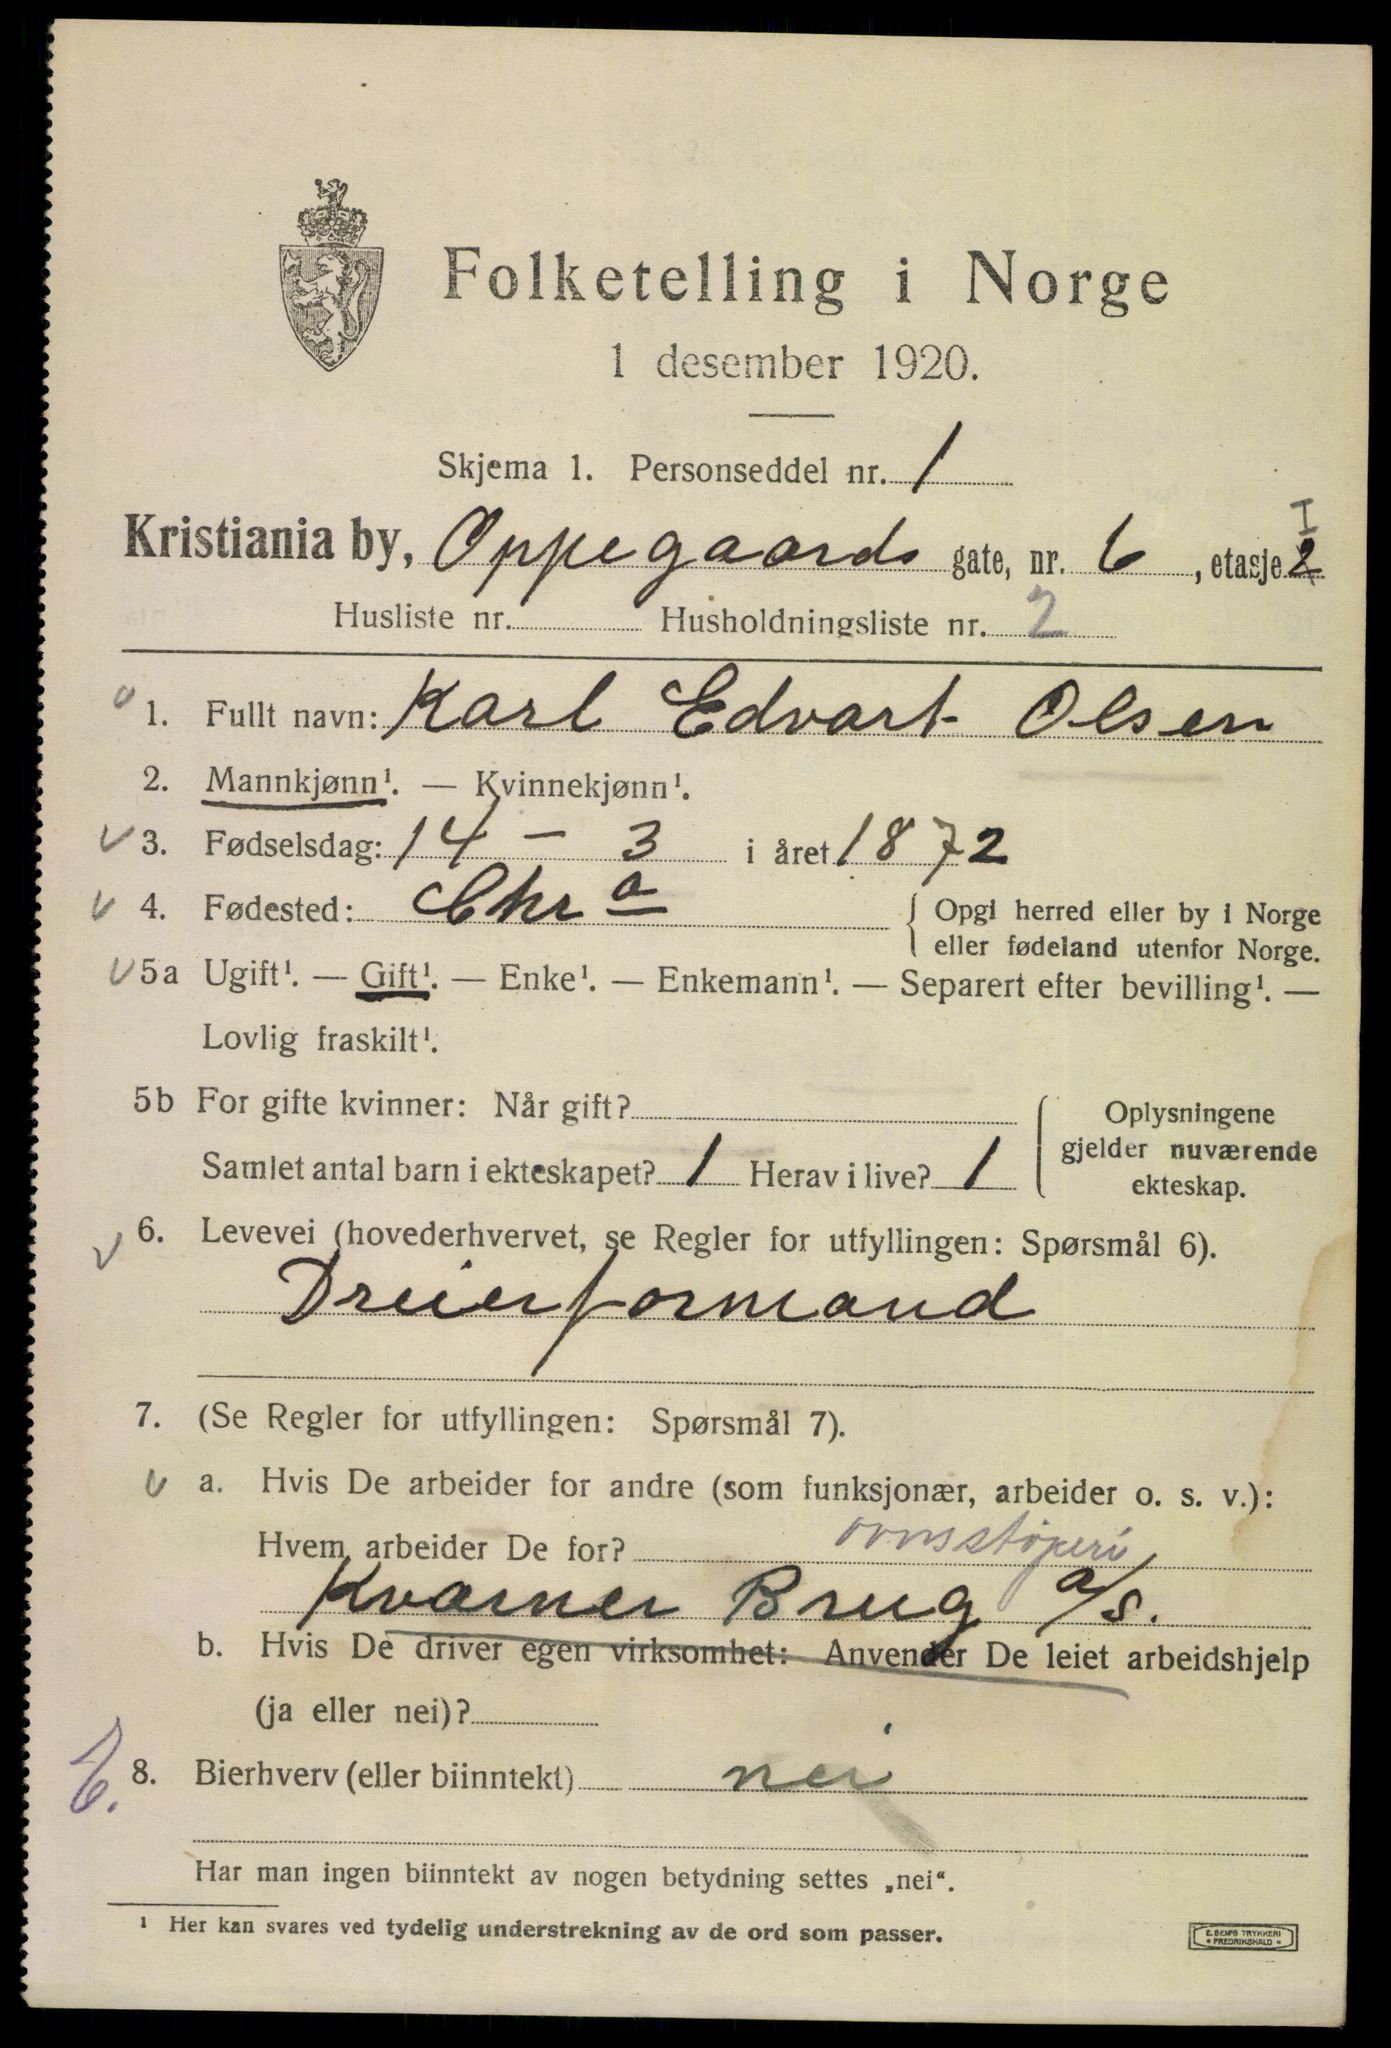 Folketelling i Norge
1 desember 1920.
Skjema 1. Personseddel nr. 1
Kristiania by, Oppegaards gate, nr. 6, etasje 2 I
Husliste nr. Husholdningsliste nr. 2
1. Fullt navn: Karl Edvart Olsen
2. Mannkjønn¹. — Kvinnekjønn¹.
3. Fødselsdag: 14 - 3 i året 1872
4. Fødested: Chr a { Opgi herred eller by i Norge
eller fødeland utenfor Norge.
5a Ugift¹. — Gift¹. — Enke¹. — Enkemann¹. — Separert efter bevilling¹. —
Lovlig fraskilt¹.
5b For gifte kvinner: Når gift?
Samlet antal barn i ekteskapet? 1 Herav i live? 1
{ Oplysningene
gjelder nuværende
ekteskap.
6. Levevei (hovederhvervet, se Regler for utfyllingen: Spørsmål 6).
Dreierformand
7. (Se Regler for utfyllingen: Spørsmål 7).
a. Hvis De arbeider for andre (som funksjonær, arbeider o. s. v.):
Hvem arbeider De for? ovnsstøperi
Kværner Brug a/s.
b. Hvis De driver egen virksomhet: Anvender De leiet arbeidshjelp
(ja eller nei)?
8. Bierhverv (eller biinntekt) nei
Har man ingen biinntekt av nogen betydning settes „nei“.
¹ Her kan svares ved tydelig understrekning av de ord som passer.
E. SEM'S TRYKKERI
• FREDRIKSHALD •